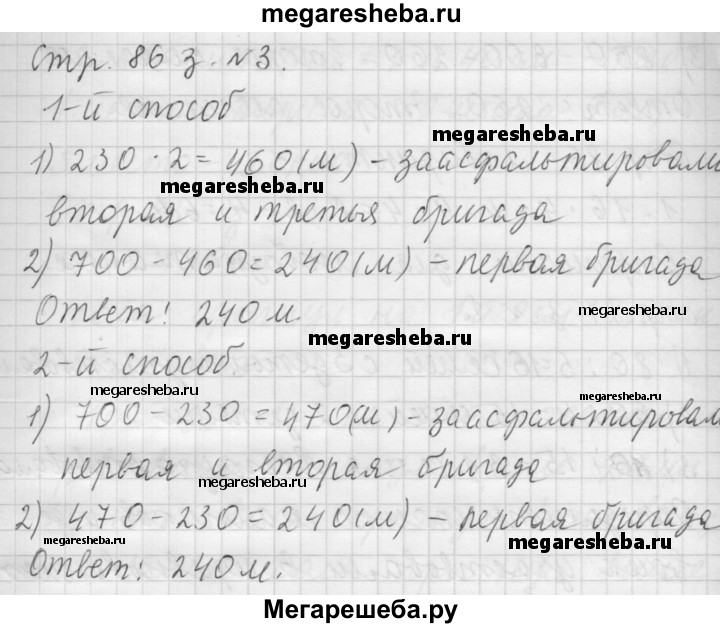 megaresheba.ru
Стр. 86 з. №3.
1-й способ
megaresheba.ru
1) 230 · 2 = 460 (м) - заасфальтировали
megaresheba.ru
вторая и третья бригада
2) 700 - 460 = 240 (м) - первая бригада
Ответ: 240 м.
megaresheba.ru
megaresheba.ru
2-й способ.
megaresheba.ru
1) 700 - 230 = 470 (м) - заасфальтировали
первая и вторая бригада
megaresheba.ru
2) 470 - 230 = 240 (м) - первая бригада
megaresheba.ru
megaresheba.ru
Ответ: 240 м.
Мегарешеба.ру